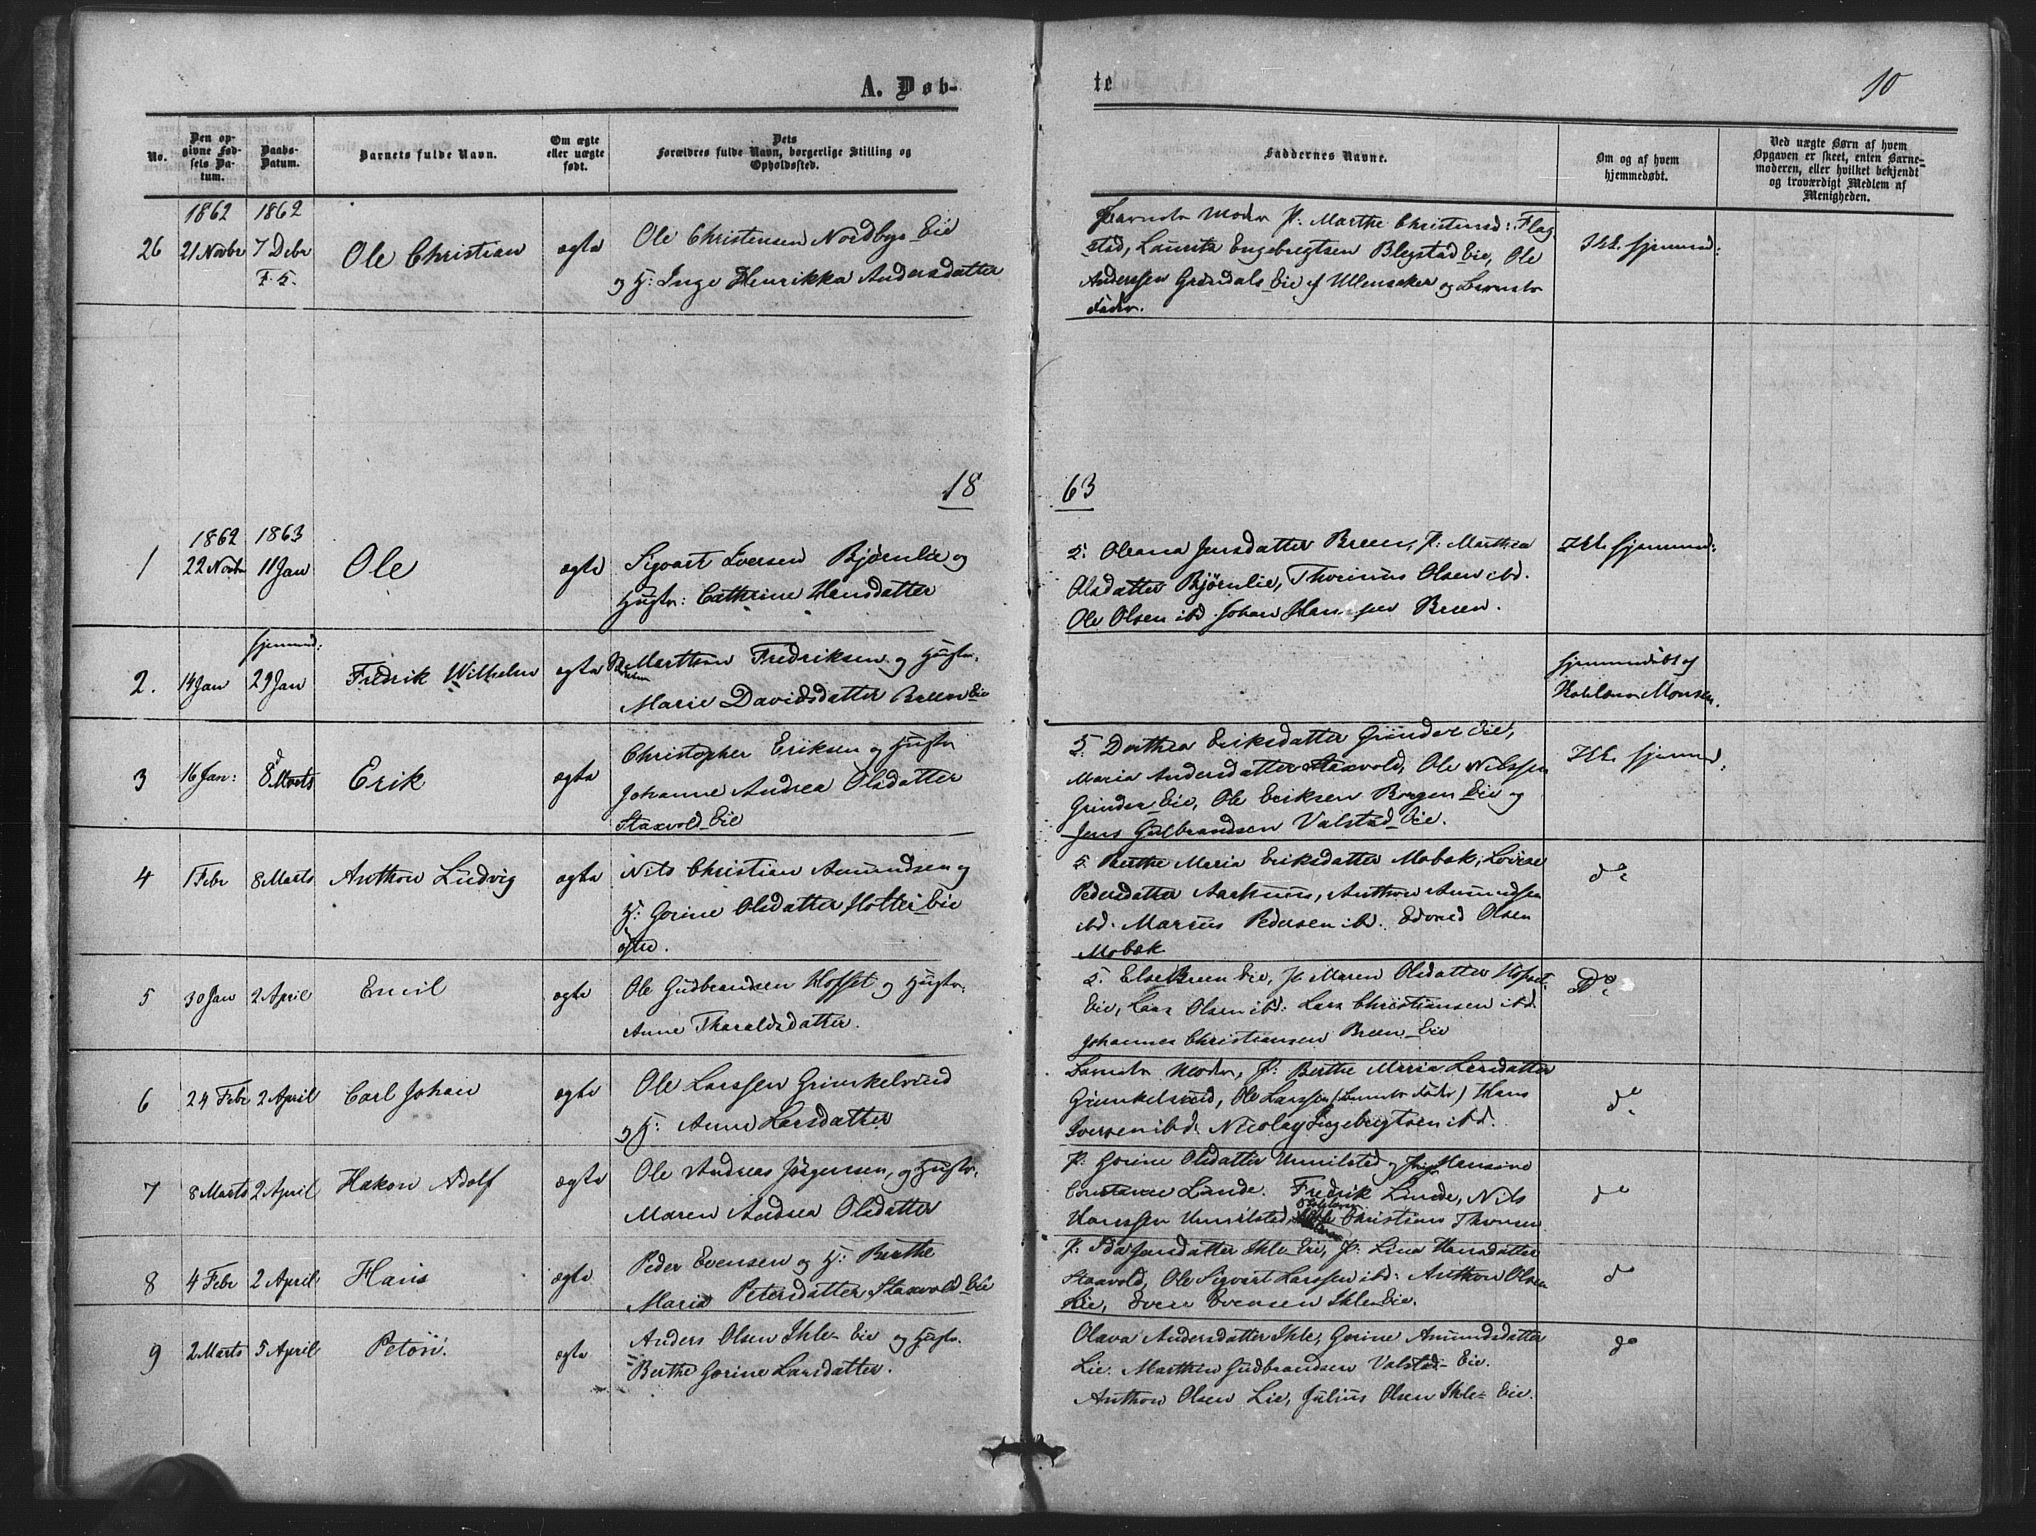 A. Døb-
te
10
No.
Den op-
givne Fød-
sels Da-
tum.
Daabs-
Datum.
Barnets fulde Navn.
Om ægte
eller uægte
født.
Dets
Forældres fulde Navn, borgerlige Stilling og
Opholdssted.
Faddernes Navne.
Om og af hvem
hjemmedøbt.
Ved uægte Børn af hvem
Opgaven er skeet, enten Barne-
moderen, eller hvilket bekjendt
og troværdigt Medlem af
Menigheden.
1862 1862
26 21 Novbr 7 Debr
F. 5.
Ole Christian
ægte
Ole Christensen Nordbye Eie
og H: Inge Henrikka Andersdatter
Barnets Moder P: Marthe Christensd: Flag
stad, Laurits Engebregtsen Blegstad Eie, Ole
Anderssen Grøndals Eie af Ullensaker og Barnets
Fader.
Ikke hjemmed:
18
63
1862 1863
1 22 Novbr 11 Jan
Ole
ægte
Sigvart Iversen Bjørnlie og
Hustr: Cathrine Hansdatter
5. Oleana Jensdatter Breen, P: Marthea
Olsdatter Bjørnlie, Thorinus Olsen ibd.
Ole Olsen ibd. Johan Hanssen Breen.
Ikke hjemmed:
hjemmed:
2. 14 Jan 29 Jan
Fredrik Wilhelm
ægte
Marthin Fredriksen og Hustr.
Marie Davidsdatter Breen Eie
hjemmedøbt af
Monsen.
3 16 Jan: 8d Marts
Erik
ægte
Christopher Eriksen og Hustr
Johanne Andrea Olsdatter
Staxvold Eie
5. Dorthea Eriksdatter Grinder Eie,
Maria Andersdatter Staxvold, Ole Nilssen
Grinder Eie, Ole Eriksen Borgen Eie og
Jens Gulbrandsen Valstad Eie.
Ikke hjemmed:
4 1 Febr 8 Marts
Anthon Ludvig
ægte
Nils Christian Amundsen og
H: Gorine Olsdatter Holter Eie
østre.
5. Berthe Maria Eriksdatter Mobæk, Lovise
Pedersdatter Aarhuus, Anthon Amundsen
ibd. Marius Pedersen ibd. Edvard Olsen
Mobæk
do
5 30 Jan 2 April
Emil
ægte
Ole Gudbrandsen Hoffset og Hustr.
Anne Tharaldsdatter.
5. Else Breen Eie, P: Maren Olsdatter Hofset
Eie, Lars Olsen ibd. Lars Christiansen ibd.
Johannes Christiansen Breen Eie
Do
6 24 Febr 2 April
Carl Johan
ægte
Ole Larssen Grimkelsrud
og H: Anne Larsdatter
Barnets Moder, P: Berthe Maria Larsdatter
Grimkelsrud, Ole Larssen (Barnets Fader) Hans
Iversen ibd: Nicolay Engebrigtsen ibd.
do
7 8 Marts 2 April
Hakon Adolf
ægte
Ole Andreas Jørgensen, og Hustr.
Maren Andrea Olsdatter
P. Gorine Olsdatter Unnilsted og Hansine
Constance Lunde. Fredrik Lunde, Nils
Hanssen Unnilsted, Christians Thronsen.
do
8 4 Febr 2 April
Hans
ægte
Peder Evensen og H: Berthe
Maria Petersdatter Staxvold Eie
P: Ida Jensdatter Ihle Eie, P. Lina Hansdatter
Staxvold, Ole Sigvart Larssen ibd: Anthon Olsen
Lie, Even Evensen Ihle Eie.
do
9 2 Marts 5 April
Petter
ægte
Anders Olsen Ihle Eie og Hustr.
Berthe Gorine Larsdatter.
Olava Andersdatter Ihle, Gorine Amundsdatter
Lie. Marthin Gudbrandsen Valstad Eie.
Anthon Olsen Lie, Julius Olsen Ihle Eie.
do